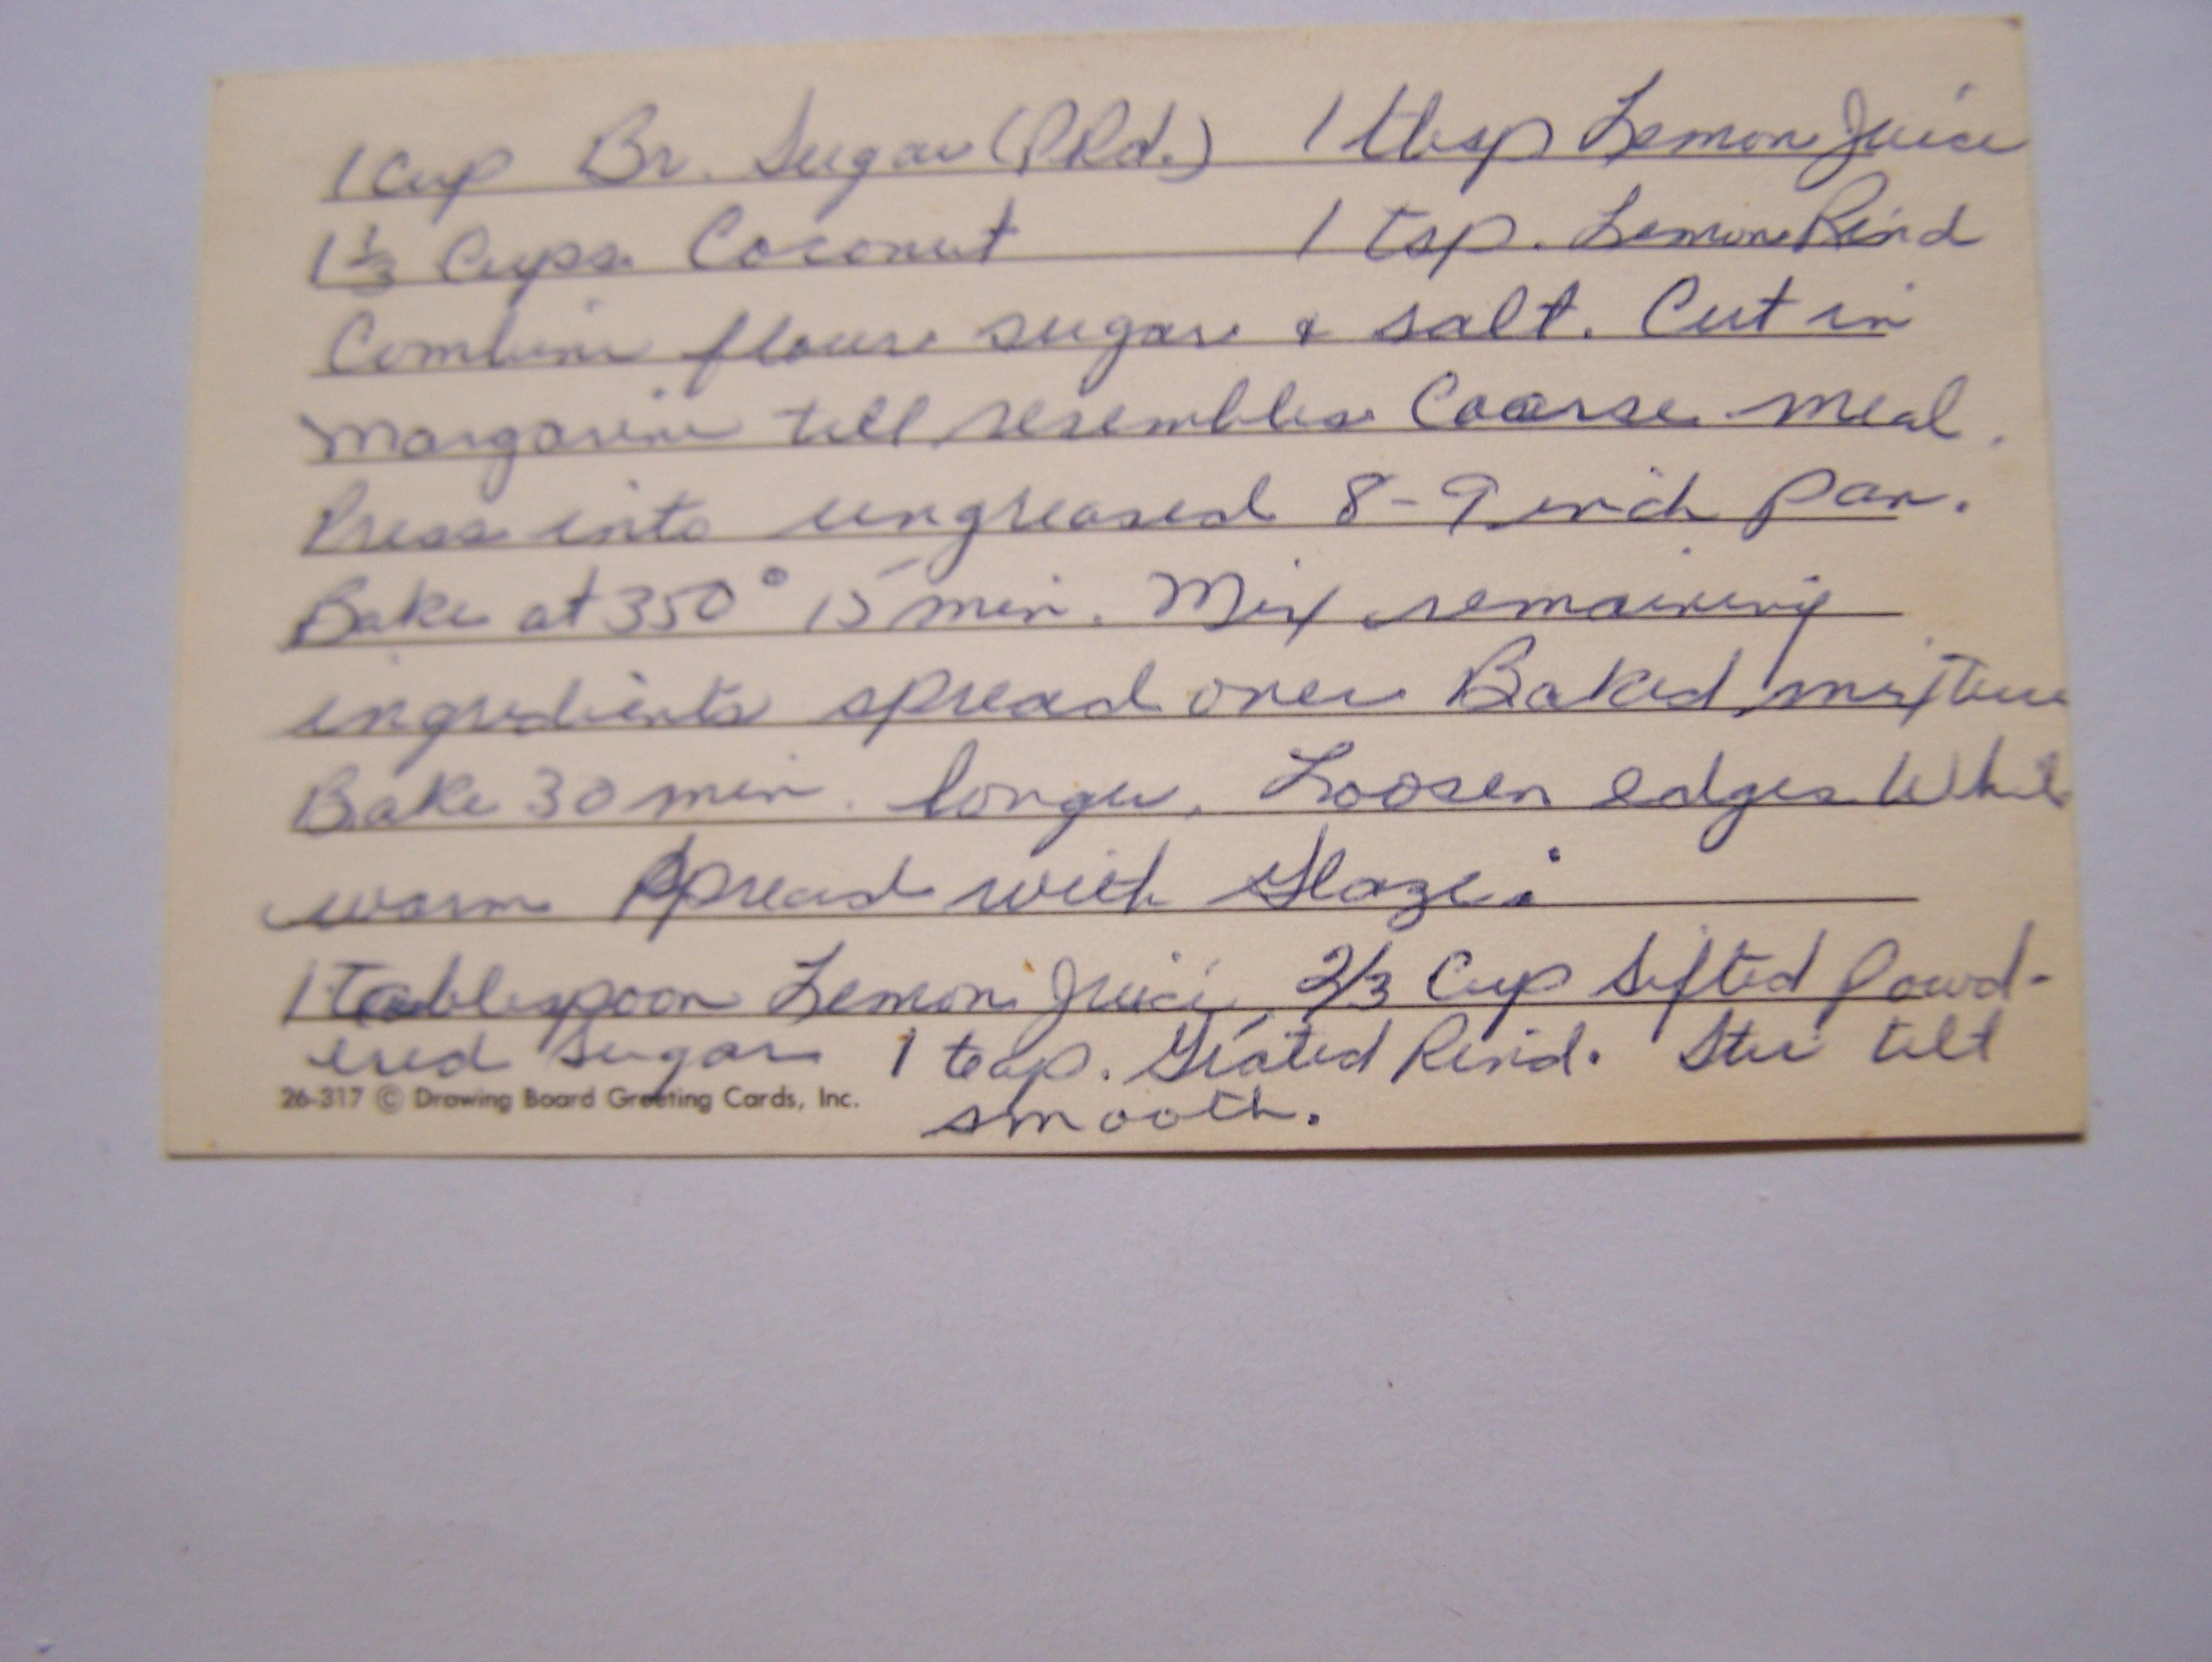 1 Cup Br. Sugar (Pkd.) 1 tbsp Lemon Juice
1 1/3 Cups Coconut 1 tsp. Lemon Rind
Combine flour sugar & salt. Cut in
Margarine till resembles Coarse meal.
Press into ungreased 8-9 inch pan.
Bake at 350° 15 min. Mix remaining
ingredients spread over Baked mixture
Bake 30 min. longer. Loosen edges While
warm Spread with Glaze:
1 Tablespoon Lemon Juice, 2/3 Cup Sifted Powd-
ered Sugar 1 teasp. Grated Rind. Stir till
smooth.
26-317 © Drawing Board Greeting Cards, Inc.